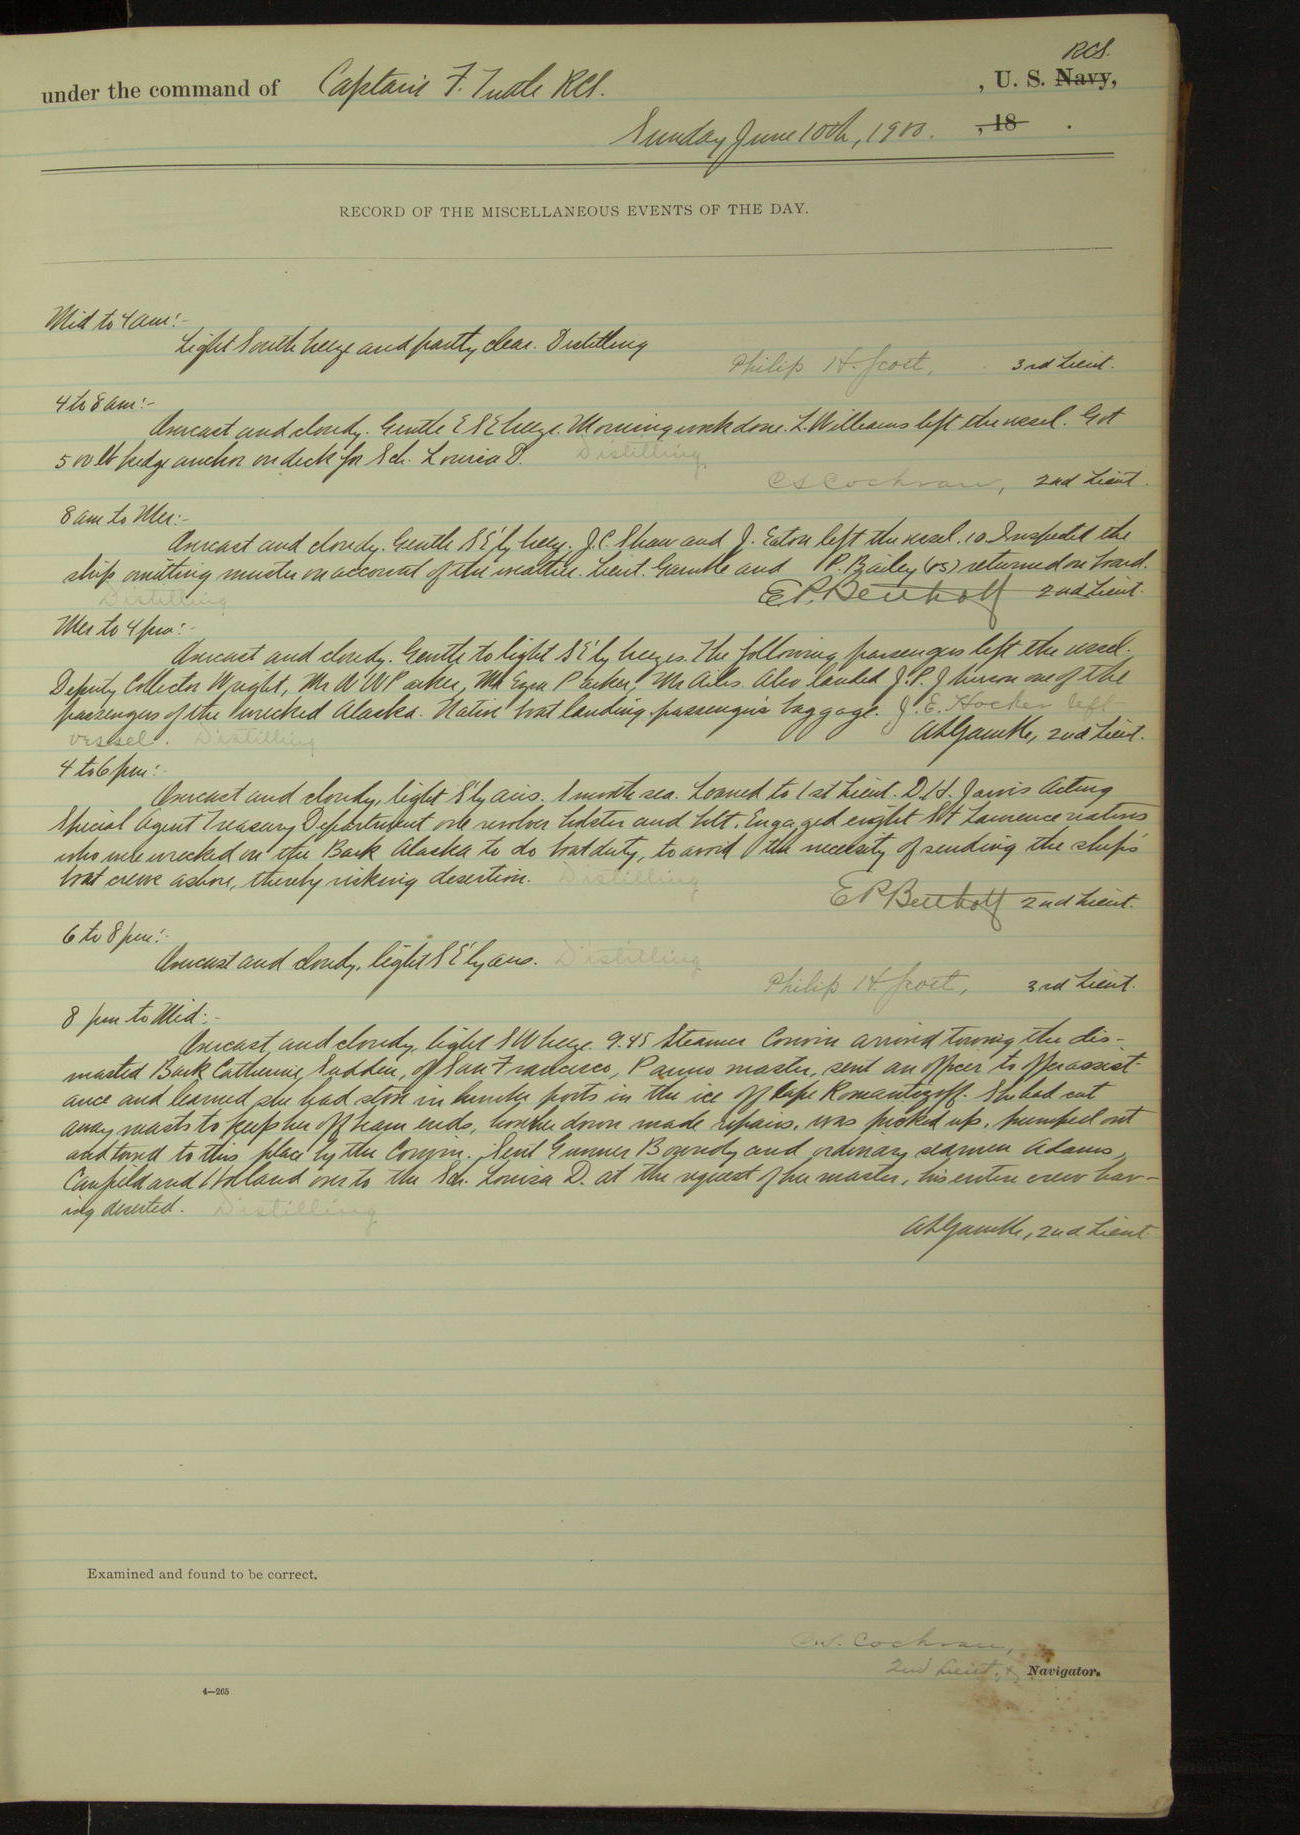 RCS.
under the command of Captain F. Tuttle RCS. , U. S. Navy,
Sunday June 10th, 1900. , 18 .
RECORD OF THE MISCELLANEOUS EVENTS OF THE DAY.
Mid to 4 am:-
Light South breeze and partly clear. Distilling
Philip H. Scott, 3rd Lieut.
4 to 8 am:-
Overcast and cloudy. Gentle ESE breeze. Morning work done. L. Williams left the vessel. Got
500 lb kedge anchor on deck for Sch. Louisa D. Distilling
C S Cochran, 2nd Lieut.
8 am to Mer:-
Overcast and cloudy. Gentle SE'ly breeze. J.C. Shaw and J. Eaton left the vessel. 10 Inspected the
ship omitting muster on account of the weather. Lieut. Gamble and P. Bailey (OS) returned on board.
Distilling E.P. Bertholf 2nd Lieut.
Mer to 4 pm:-
Overcast and cloudy. Gentle to light SE'ly breezes. The following passengers left the vessel.
Deputy Collector Wright, Mr W W Parker, Mr Ezra Parker, Mr Ailes. Also landed J.P. Johnson one of the
passengers of the wrecked Alaska. Native boat landing passengers baggage. J. E. Hocker left
vessel. Distilling A L Gamble, 2nd Lieut.
4 to 6 pm:-
Overcast and cloudy, light S'ly airs. Smooth sea. Loaned to 1st Lieut. D.H. Jarvis Acting
Special Agent Treasury Department one revolver holster and belt. Engaged eight St Lawrence natives
who were wrecked on the Bark Alaska to do boat duty, to avoid the necessity of sending the ship's
boat crew ashore, thereby risking desertion. Distilling
E P Bertholf 2nd Lieut.
6 to 8 pm:-
Overcast and cloudy, light SE'ly airs. Distilling
Philip H. Scott, 3rd Lieut.
8 pm to Mid:-
Overcast and cloudy, light SW breeze. 9.45 Steamer Corwin arrived towing the dis-
masted Bark Catherine Sudden, of San Francisco, master, sent an officer to offer assist-
ance and learned she had stove in lumber ports in the ice off Cape Romantzoff. She had cut
away masts to keep her off beam ends, hove down made repairs, was picked up, pumped out
and towed to this place by the Corwin. Sent Gunner and ordinary seamen Adams,
Canfield and Holland over to the Sch. Louisa D. at the request of her master, his entire crew hav-
ing deserted. Distilling
A L Gamble, 2nd Lieut.
Examined and found to be correct.
C.S. Cochran,
2nd Lieut. & Navigator.
4—265